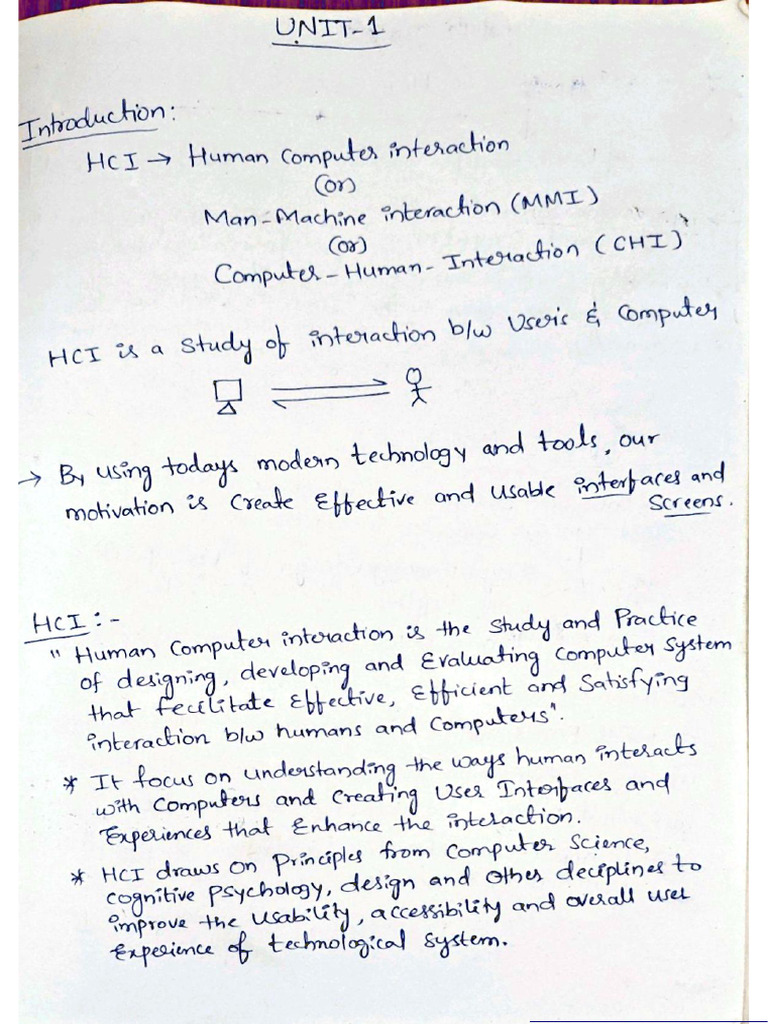 UNIT-1
Introduction:
HCI → Human Computer interaction
(or)
Man-Machine interaction (MMI)
(or)
Computer-Human-Interaction (CHI)
HCI is a study of interaction b/w Users & Computer
→ By using todays modern technology and tools, our
motivation is Create Effective and usable interfaces and
Screens.
HCI :-
" Human Computer interaction is the study and Practice
of designing, developing and Evaluating Computer System
that fecilitate Effective, Efficient and Satisfying
interaction b/w humans and Computers".
* It focus on understanding the ways human interacts
with Computers and Creating User Interfaces and
Experiences that Enhance the interaction.
* HCI draws on Principles from Computer Science,
cognitive Psychology, design and other deciplines to
improve the Usability, accessibility and overall user
Experience of technological System.